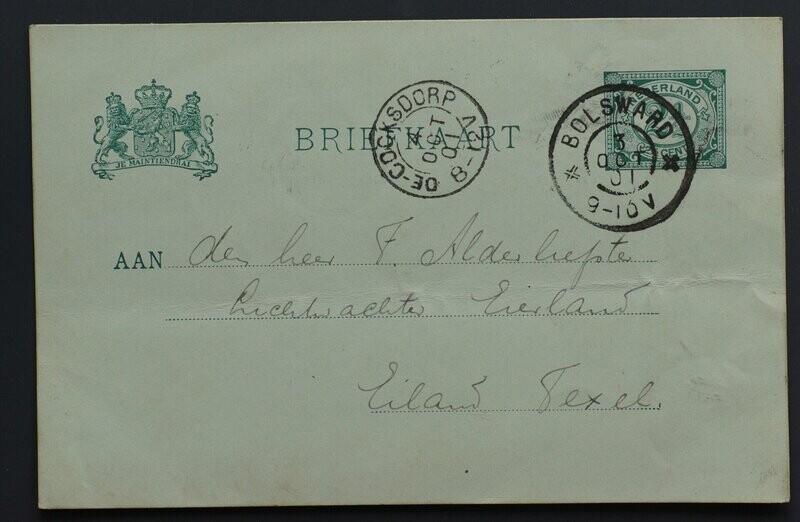 JE MAINTIENDRAI
BRIEFKAART
DE-COCKSDORP
OCT
01
BOLSWARD
3
OCT
01
9-10V
NEDERLAND
CENT
AAN den heer F. Alderliefste
Lichtwachter Eierland
Eiland Texel.